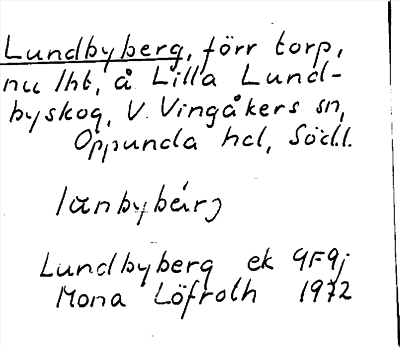 Lundbyberg, förr torp,
nu lht, å Lilla Lund-
byskog, V. Vingåkers sn,
Oppunda hd, Södl.
lunbybärj
Lundbyberg ek 9F9j
Mona Löfroth 1972